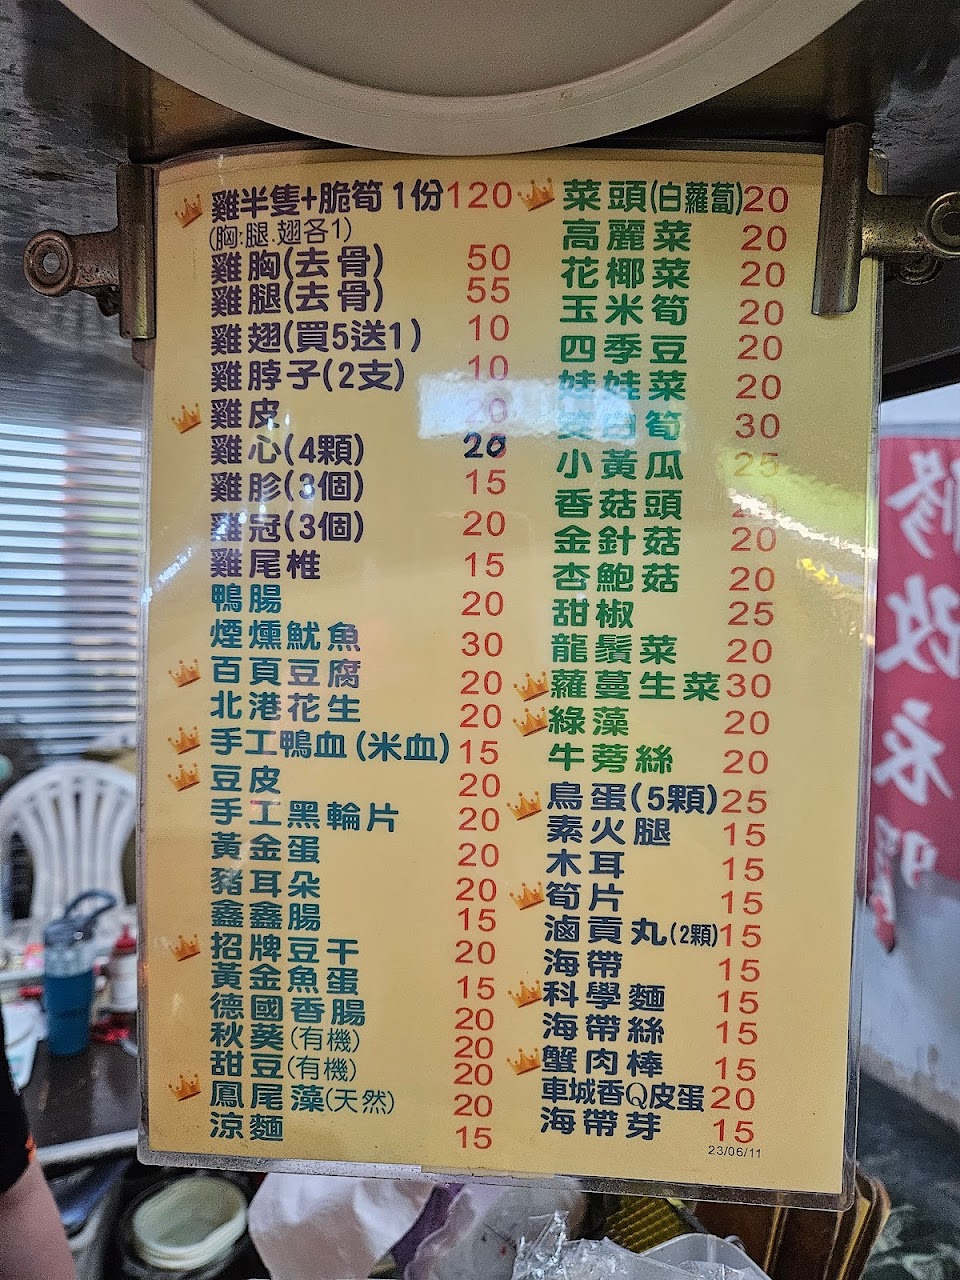 雞半隻+脆筍 1份 120
(胸.腿.翅各1)
雞胸(去骨) 50
雞腿(去骨) 55
雞翅(買5送1) 10
雞脖子(2支) 10
雞皮 20
雞心(4顆) 20
雞胗(3個) 15
雞冠(3個) 20
雞尾椎 15
鴨腸 20
煙燻魷魚 30
百頁豆腐 20
北港花生 20
手工鴨血(米血) 15
豆皮 20
手工黑輪片 20
黃金蛋 20
豬耳朵 20
鑫鑫腸 15
招牌豆干 20
黃金魚蛋 15
德國香腸 20
秋葵(有機) 20
甜豆(有機) 20
鳳尾藻(天然) 20
涼麵 15
菜頭(白蘿蔔) 20
高麗菜 20
花椰菜 20
玉米筍 20
四季豆 20
娃娃菜 20
筊白筍 30
小黃瓜 25
香菇頭 20
金針菇 20
杏鮑菇 20
甜椒 25
龍鬚菜 20
蘿蔓生菜 30
綠藻 20
牛蒡絲 20
鳥蛋(5顆) 25
素火腿 15
木耳 15
筍片 15
滷貢丸(2顆) 15
海帶 15
科學麵 15
海帶絲 15
蟹肉棒 15
車城香Q皮蛋 20
海帶芽 15
23/06/11
修改衣